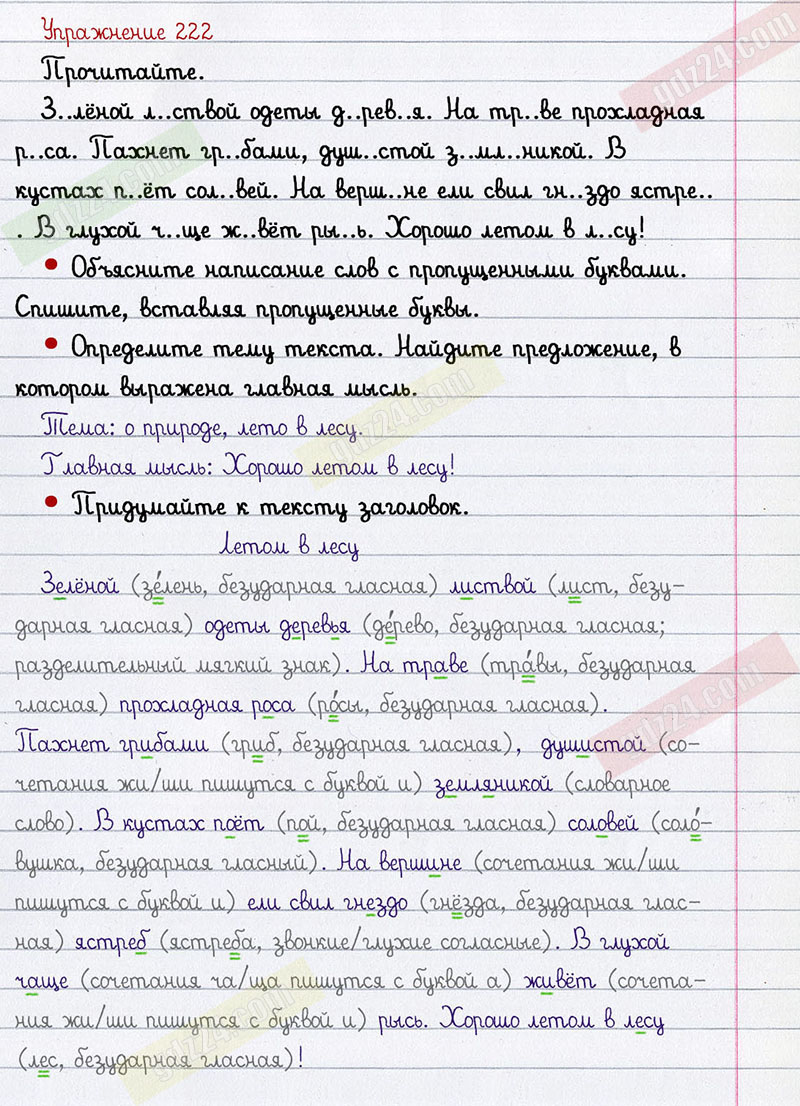 Упражнение 222
Прочитайте.
З..лёной л..ствой одеты д..рев..я. На тр..ве прохладная
р..са. Пахнет гр..бами, душ..стой з..мл..никой. В
кустах п..ёт сол..вей. На верш..не ели свил гн..здо ястре..
. В глухой ч..ще ж..вёт ры..ь. Хорошо летом в л..су!
• Объясните написание слов с пропущенными буквами.
Спишите, вставляя пропущенные буквы.
• Определите тему текста. Найдите предложение, в
котором выражена главная мысль.
Тема: о природе, лето в лесу.
Главная мысль: Хорошо летом в лесу!
• Придумайте к тексту заголовок.
Летом в лесу
Зелёной (зе́лень, безударная гласная) листвой (лист, безу-
дарная гласная) одеты деревья (де́рево, безударная гласная;
разделительный мягкий знак). На траве (тра́вы, безударная
гласная) прохладная роса (ро́сы, безударная гласная).
Пахнет грибами (гриб, безударная гласная), душистой (со-
четания жи/ши пишутся с буквой и) земляникой (словарное
слово). В кустах поёт (пой, безударная гласная) соловей (соло́-
вушка, безударная гласный). На вершине (сочетания жи/ши
пишутся с буквой и) ели свил гнездо (гнёзда, безударная глас-
ная) ястреб (ястреба, звонкие/глухие согласные). В глухой
чаще (сочетания ча/ща пишутся с буквой а) живёт (сочета-
ния жи/ши пишутся с буквой и) рысь. Хорошо летом в лесу
(лес, безударная гласная)!
gdz24.com
gdz24.com
gdz24.com
gdz24.com
gdz24.com